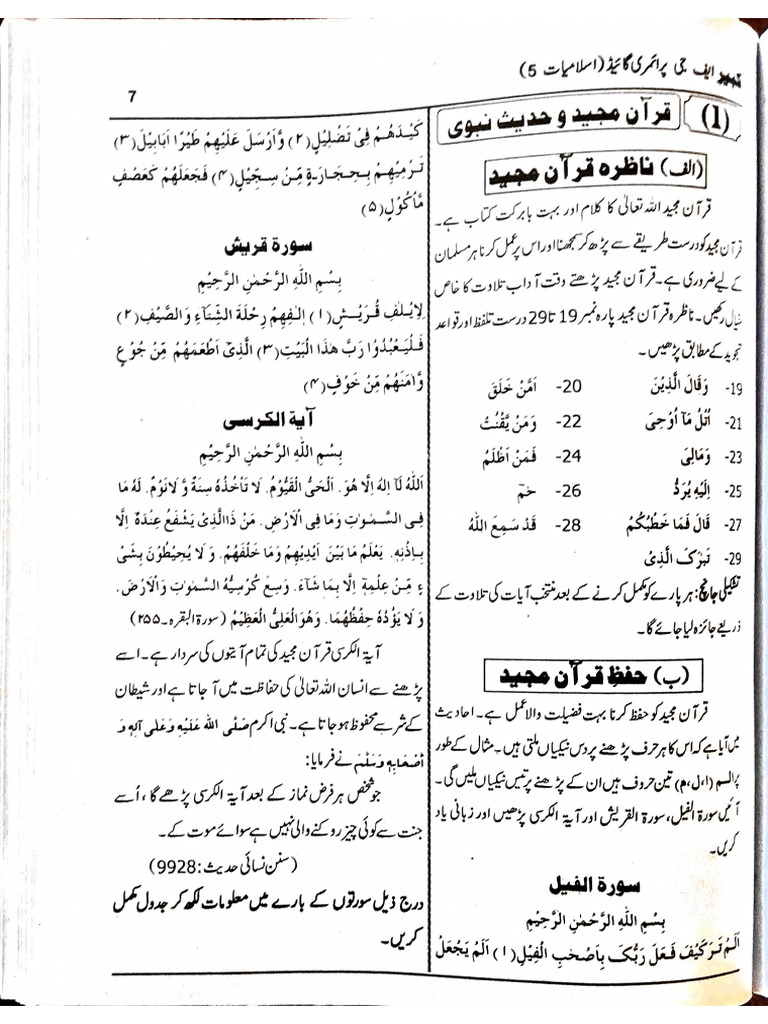 ایف جی پرائمری گائیڈ (اسلامیات 5)
7
(1) قرآن مجید و حدیث نبوی
(الف) ناظرہ قرآن مجید
قرآن مجید اللہ تعالیٰ کا کلام اور بہت بابرکت کتاب ہے۔
قرآن مجید کو درست طریقے سے پڑھ کر سمجھنا اور اس پر عمل کرنا ہر مسلمان
کے لیے ضروری ہے۔ قرآن مجید پڑھتے وقت آداب تلاوت کا خاص
خیال رکھیں۔ ناظرہ قرآن مجید پارہ نمبر 19 تا 29 درست تلفظ اور قواعد
تجوید کے مطابق پڑھیں۔
19- وَقَالَ الَّذِیْنَ 20- اَمَّنْ خَلَقَ
21- اُتْلُ مَآ اُوْحِیَ 22- وَمَنْ یَّقْنُتْ
23- وَمَالِیَ 24- فَمَنْ اَظْلَمُ
25- اِلَیْهِ یُرَدُّ 26- حٰمٓ
27- قَالَ فَمَا خَطْبُکُمْ 28- قَدْ سَمِعَ اللهُ
29- تَبٰرَکَ الَّذِیْ
تشکیلی جانچ: ہر پارے کو مکمل کرنے کے بعد منتخب آیات کی تلاوت کے
ذریعے جائزہ لیا جائے گا۔
(ب) حفظِ قرآن مجید
قرآن مجید کو حفظ کرنا بہت فضیلت والا عمل ہے۔ احادیث
میں آیا ہے کہ اس کا ہر حرف پڑھنے پر دس نیکیاں ملتی ہیں۔ مثال کے طور
پر الٓمٓ (ا،ل،م) تین حروف ہیں ان کے پڑھنے پر تیس نیکیاں ملیں گی۔
آئیں سورۃ الفیل، سورۃ القریش اور آیۃ الکرسی پڑھیں اور زبانی یاد
کریں۔
سورۃ الفیل
بِسْمِ اللهِ الرَّحْمٰنِ الرَّحِیْمِ
اَلَمْ تَرَ کَیْفَ فَعَلَ رَبُّکَ بِاَصْحٰبِ الْفِیْلِ (۱) اَلَمْ یَجْعَلْ
کَیْدَهُمْ فِیْ تَضْلِیْلٍ (۲) وَّاَرْسَلَ عَلَیْهِمْ طَیْرًا اَبَابِیْلَ (۳)
تَرْمِیْهِمْ بِحِجَارَةٍ مِّنْ سِجِّیْلٍ (۴) فَجَعَلَهُمْ کَعَصْفٍ
مَّاْکُوْلٍ (۵)
سورۃ قریش
بِسْمِ اللهِ الرَّحْمٰنِ الرَّحِیْمِ
لِاِیْلٰفِ قُرَیْشٍ (۱) اٖلٰفِهِمْ رِحْلَةَ الشِّتَآءِ وَالصَّیْفِ (۲)
فَلْیَعْبُدُوْا رَبَّ هٰذَا الْبَیْتِ (۳) الَّذِیْ اَطْعَمَهُمْ مِّنْ جُوْعٍ
وَّاٰمَنَهُمْ مِّنْ خَوْفٍ (۴)
آیۃ الکرسی
بِسْمِ اللهِ الرَّحْمٰنِ الرَّحِیْمِ
اَللهُ لَآ اِلٰهَ اِلَّا هُوَ۔ اَلْحَیُّ الْقَیُّوْمُ۔ لَا تَاْخُذُهٗ سِنَةٌ وَّ لَا نَوْمٌ۔ لَهٗ مَا
فِی السَّمٰوٰتِ وَمَا فِی الْاَرْضِ۔ مَنْ ذَاالَّذِیْ یَشْفَعُ عِنْدَهٗ اِلَّا
بِاِذْنِهٖ۔ یَعْلَمُ مَا بَیْنَ اَیْدِیْهِمْ وَمَا خَلْفَهُمْ۔ وَلَا یُحِیْطُوْنَ بِشَیْ
ءٍ مِّنْ عِلْمِهٖٓ اِلَّا بِمَا شَآءَ۔ وَسِعَ کُرْسِیُّهُ السَّمٰوٰتِ وَالْاَرْضَ۔
وَلَا یَؤُدُهٗ حِفْظُهُمَا۔ وَهُوَ الْعَلِیُّ الْعَظِیْمُ (سورۃ البقرہ۔۲۵۵)
آیۃ الکرسی قرآن مجید کی تمام آیتوں کی سردار ہے۔ اسے
پڑھنے سے انسان اللہ تعالیٰ کی حفاظت میں آ جاتا ہے اور شیطان
کے شر سے محفوظ ہو جاتا ہے۔ نبی اکرم صَلَّی اللهُ عَلَیْهِ وَعَلٰی آلِهٖ وَ
اَصْحَابِهٖ وَسَلَّمَ نے فرمایا:
جو شخص ہر فرض نماز کے بعد آیۃ الکرسی پڑھے گا، اُسے
جنت سے کوئی چیز روکنے والی نہیں ہے سوائے موت کے۔
(سنن نسائی حدیث: 9928)
درج ذیل سورتوں کے بارے میں معلومات لکھ کر جدول مکمل
کریں۔